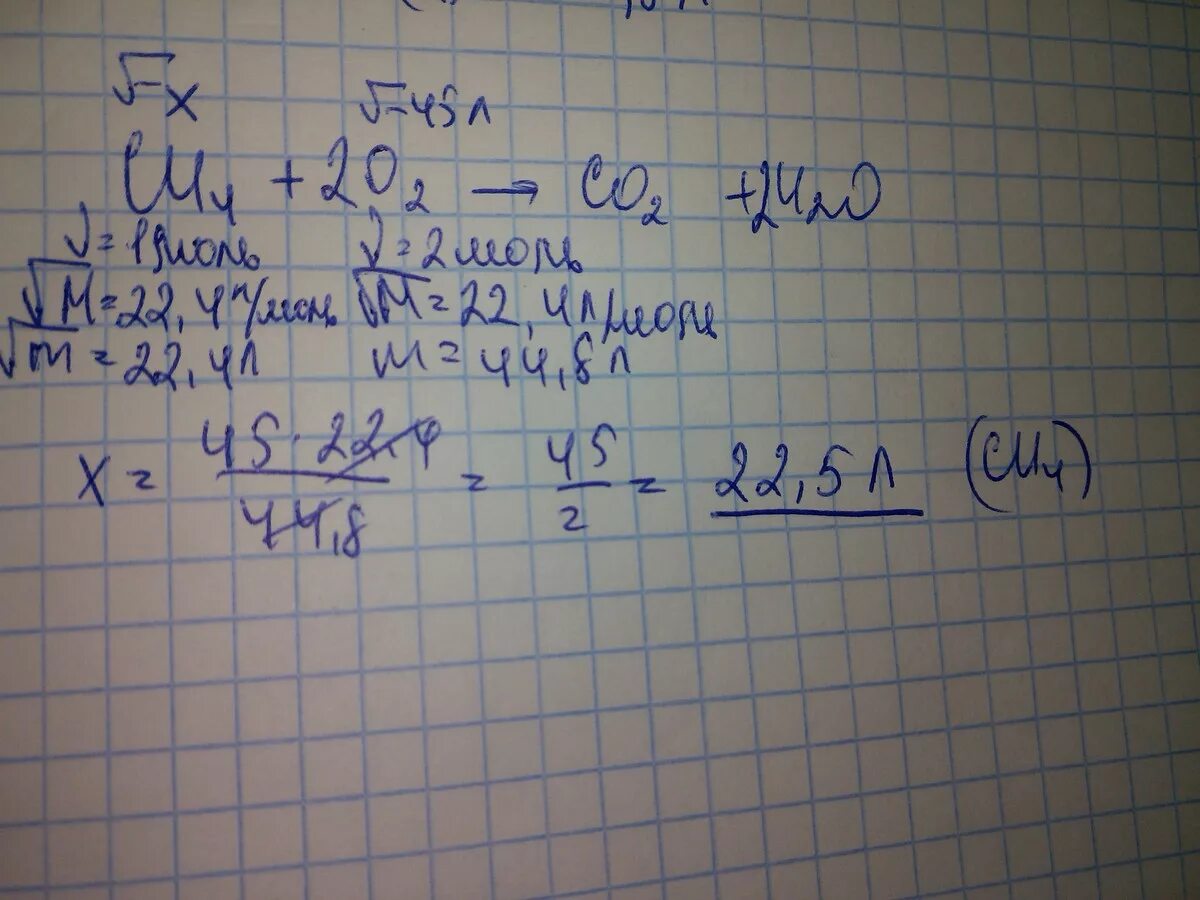 V - x    V - 45 л
CH₄ + 2O₂ → CO₂ + 2H₂O
ν = 1 моль    ν = 2 моль
VM = 22,4 л/моль    VM = 22,4 л/моль
Vm = 22,4 л    m = 44,8 л
X = 45 · 22,4 / 44,8 = 45 / 2 = 22,5 л (CH₄)